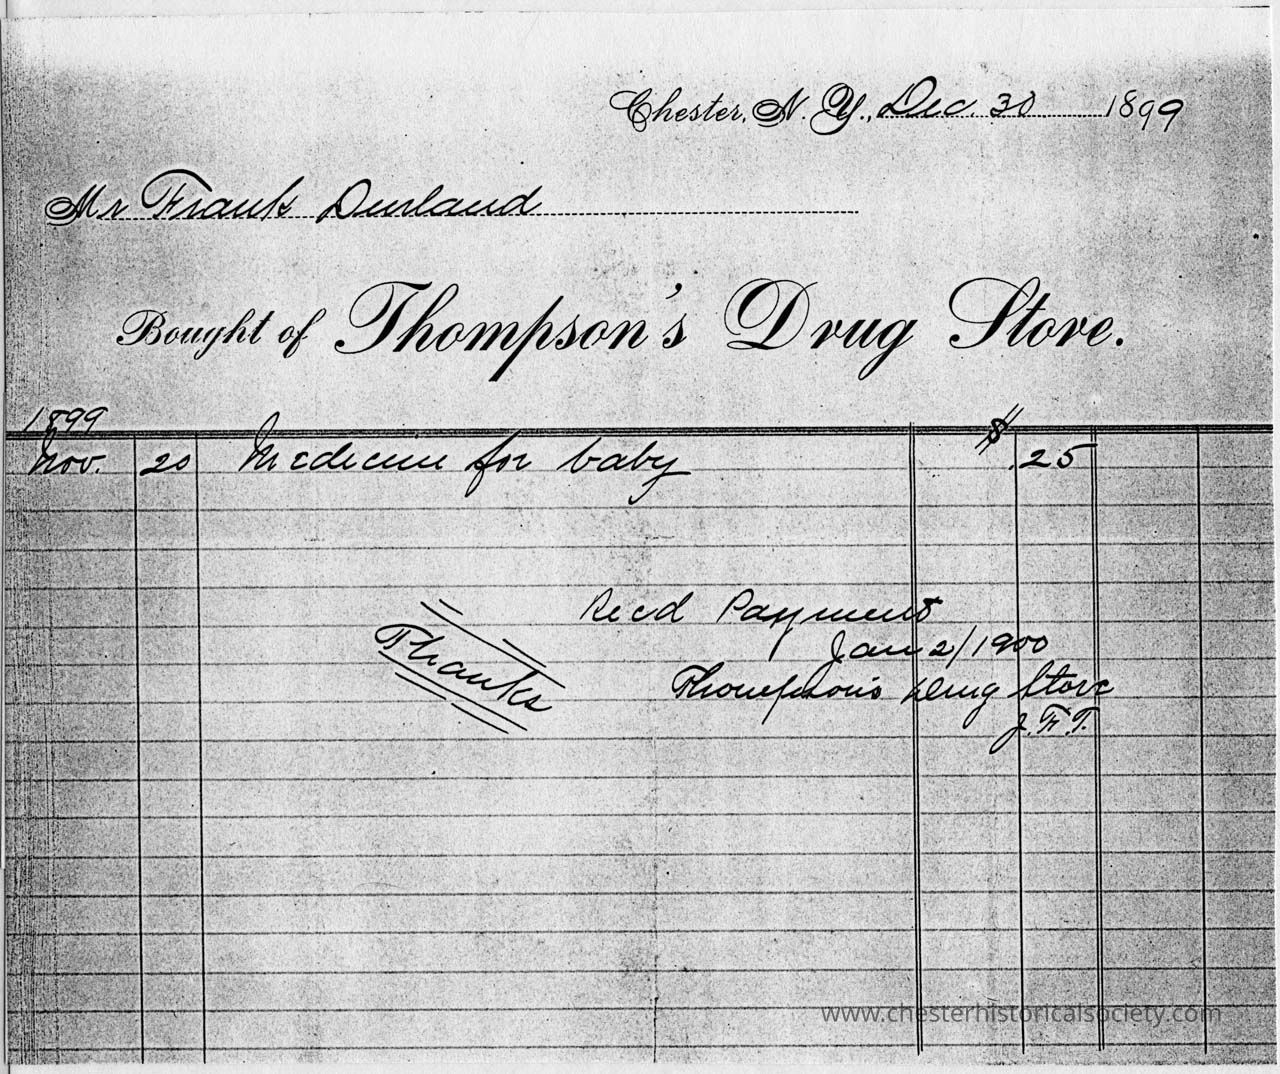 Chester, N. Y., Dec. 30 1899
Mr Frank Durland
Bought of Thompson's Drug Store.
1899
Nov. 20 Medicine for baby $ .25
Recd Payment
Jan 2/1900
Thanks
Thompson's Drug Store
J.F.T.
www.chesterhistoricalsociety.com